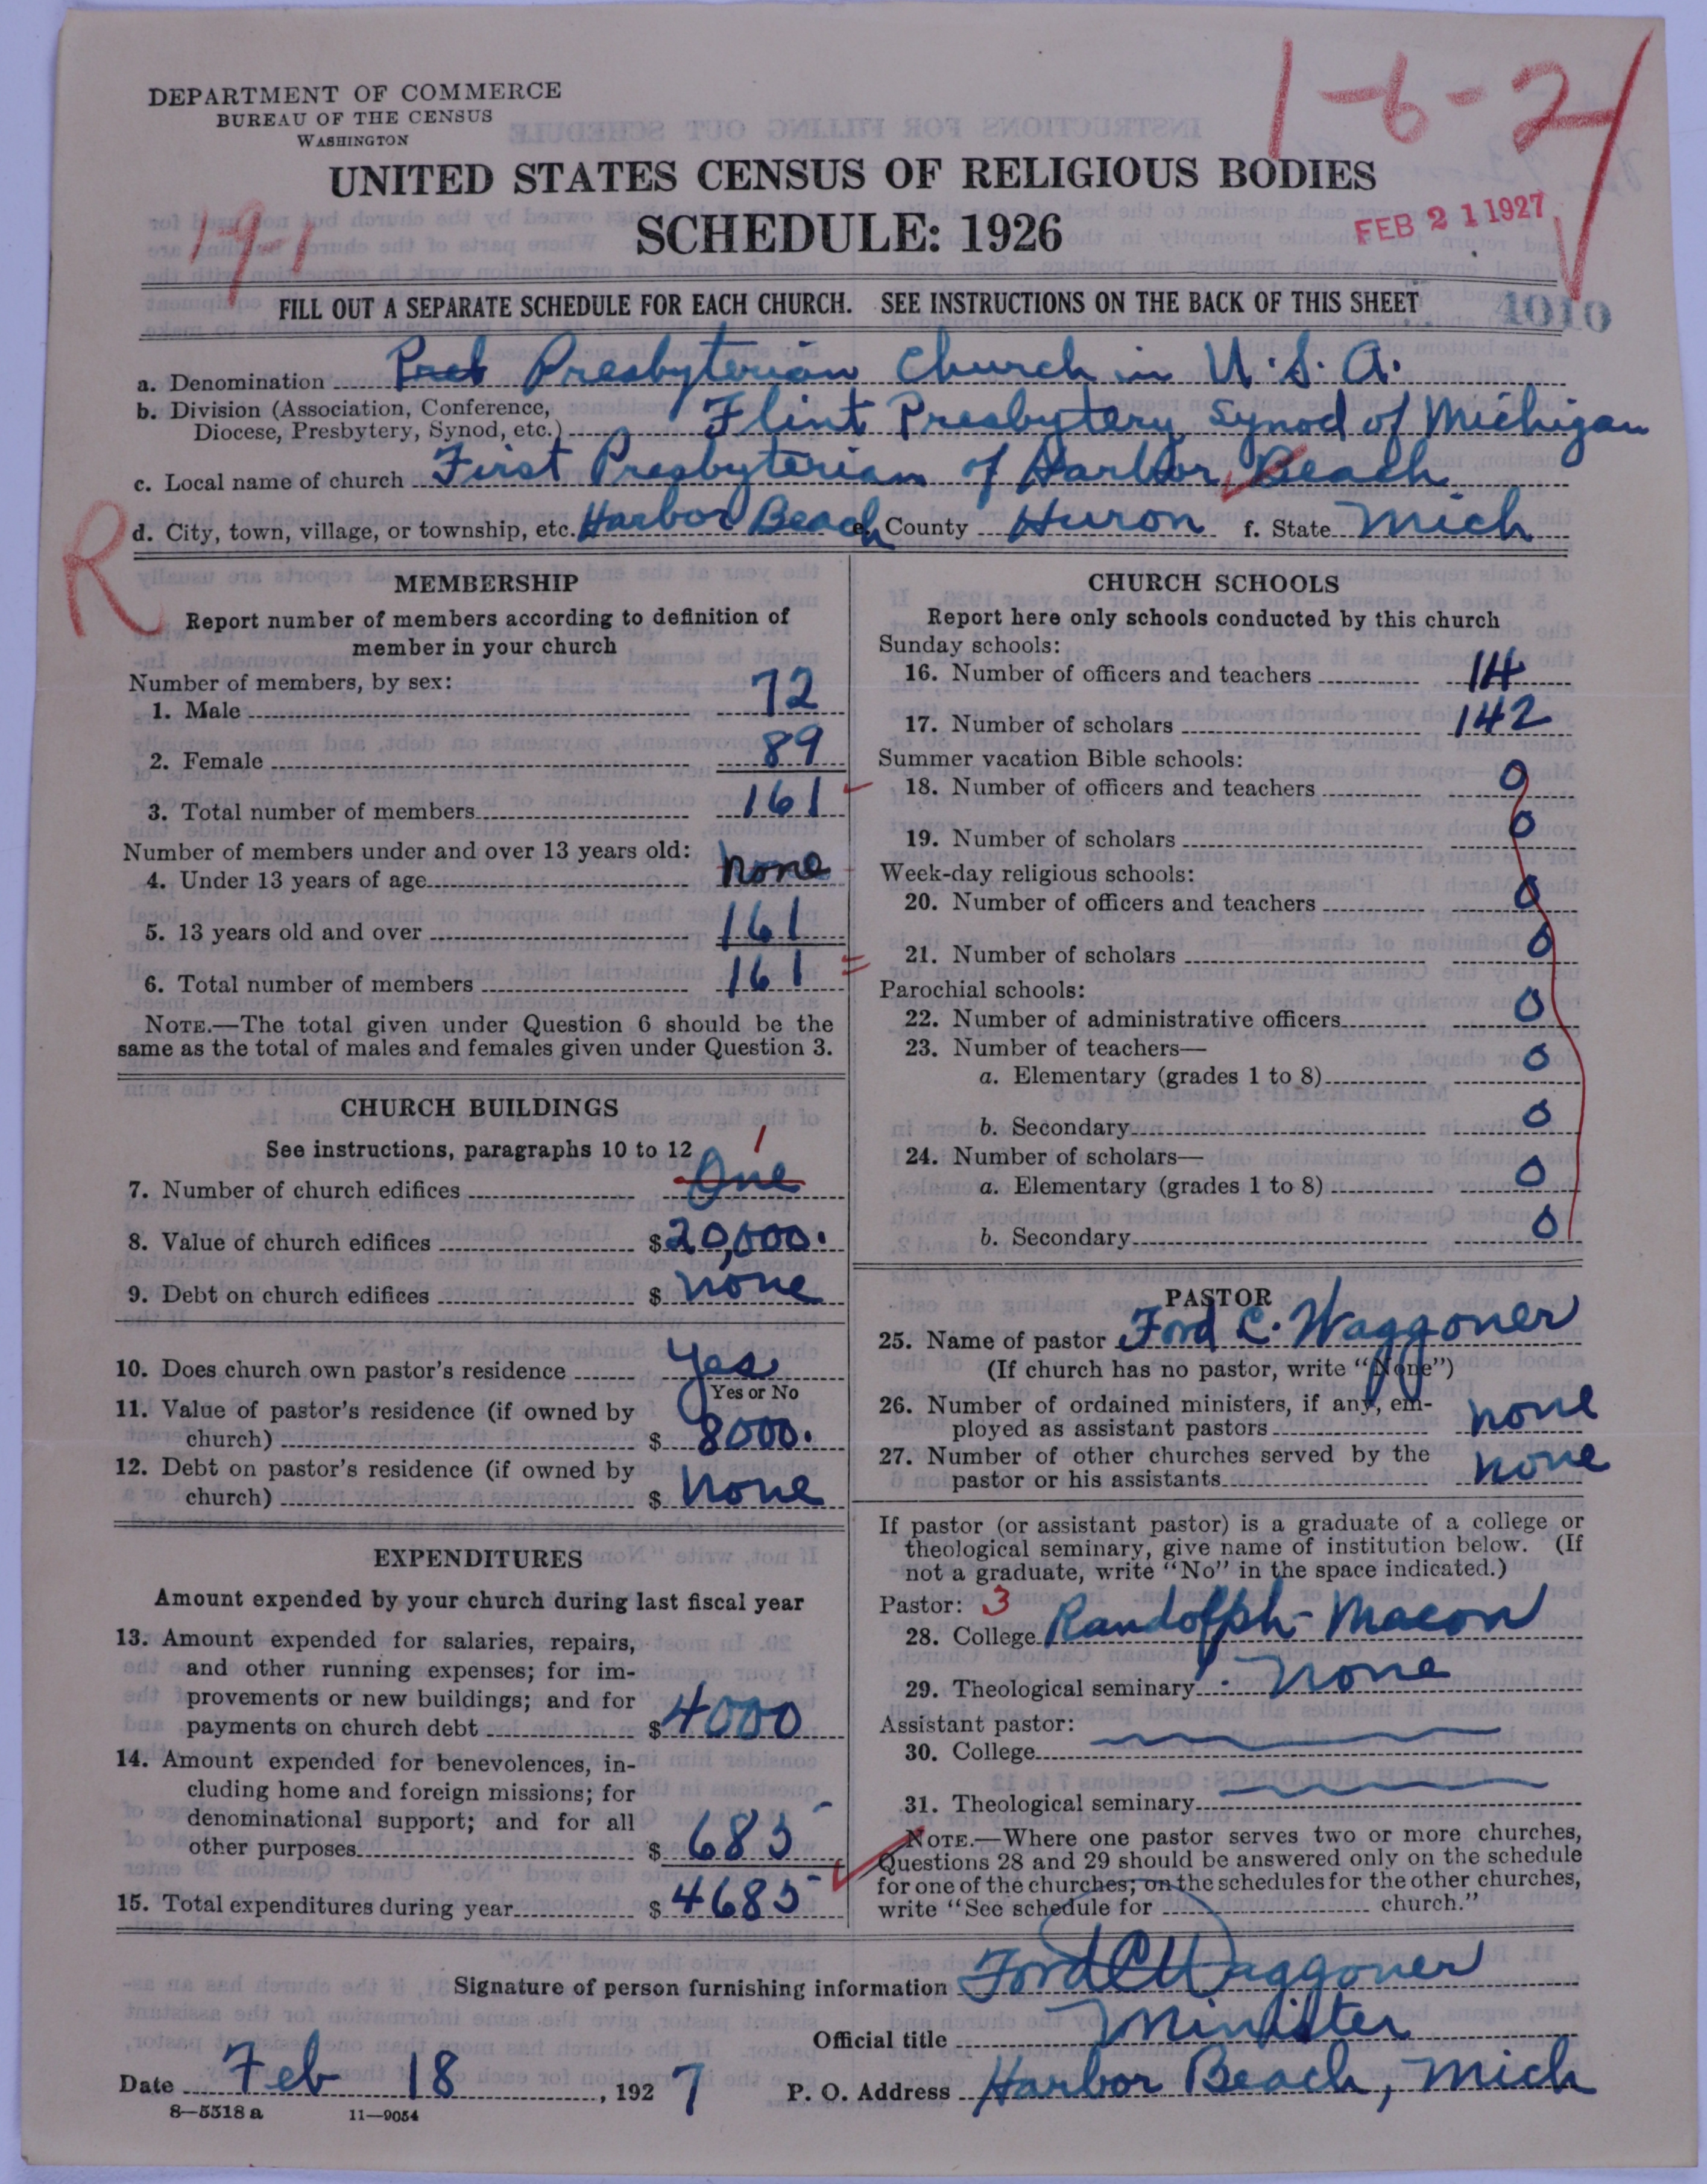 DEPARTMENT OF COMMERCE
BUREAU OF THE CENSUS
WASHINGTON
1-6-2
UNITED STATES CENSUS OF RELIGIOUS BODIES
SCHEDULE: 1926
19-1
FEB 21 1927
FILL OUT A SEPARATE SCHEDULE FOR EACH CHURCH. SEE INSTRUCTIONS ON THE BACK OF THIS SHEET
4010
a. Denomination Presb Presbyterian Church in U.S.A.
b. Division (Association, Conference,
Diocese, Presbytery, Synod, etc.) Flint Presbytery Synod of Michigan
c. Local name of church First Presbyterian of Harbor Beach
d. City, town, village, or township, etc. Harbor Beach e. County Huron f. State Mich
R
MEMBERSHIP
Report number of members according to definition of
member in your church
Number of members, by sex:
1. Male 72
2. Female 89
3. Total number of members 161
Number of members under and over 13 years old:
4. Under 13 years of age none
5. 13 years old and over 161
6. Total number of members 161
NOTE.—The total given under Question 6 should be the
same as the total of males and females given under Question 3.
CHURCH BUILDINGS
See instructions, paragraphs 10 to 12
1
7. Number of church edifices One
8. Value of church edifices $20,000.
9. Debt on church edifices $ none
10. Does church own pastor's residence Yes
Yes or No
11. Value of pastor's residence (if owned by
church) $ 8000.
12. Debt on pastor's residence (if owned by
church) $ none
EXPENDITURES
Amount expended by your church during last fiscal year
13. Amount expended for salaries, repairs,
and other running expenses; for im-
provements or new buildings; and for
payments on church debt $4000
14. Amount expended for benevolences, in-
cluding home and foreign missions; for
denominational support; and for all
other purposes $ 685
15. Total expenditures during year $ 4685
CHURCH SCHOOLS
Report here only schools conducted by this church
Sunday schools:
16. Number of officers and teachers 14
17. Number of scholars 142
Summer vacation Bible schools:
18. Number of officers and teachers 0
19. Number of scholars 0
Week-day religious schools:
20. Number of officers and teachers 0
21. Number of scholars 0
Parochial schools:
22. Number of administrative officers 0
23. Number of teachers—
a. Elementary (grades 1 to 8) 0
b. Secondary 0
24. Number of scholars—
a. Elementary (grades 1 to 8) 0
b. Secondary 0
PASTOR
25. Name of pastor Ford C. Waggoner
(If church has no pastor, write "None")
26. Number of ordained ministers, if any, em-
ployed as assistant pastors none
27. Number of other churches served by the
pastor or his assistants none
If pastor (or assistant pastor) is a graduate of a college or
theological seminary, give name of institution below. (If
not a graduate, write "No" in the space indicated.)
Pastor: 3
28. College Randolph-Macon
29. Theological seminary none
Assistant pastor:
30. College
31. Theological seminary
NOTE.—Where one pastor serves two or more churches,
Questions 28 and 29 should be answered only on the schedule
for one of the churches; on the schedules for the other churches,
write "See schedule for church."
Signature of person furnishing information Ford C Waggoner
Official title Minister
Date Feb 18, 1927 P. O. Address Harbor Beach, Mich
8—5518 a 11—9054